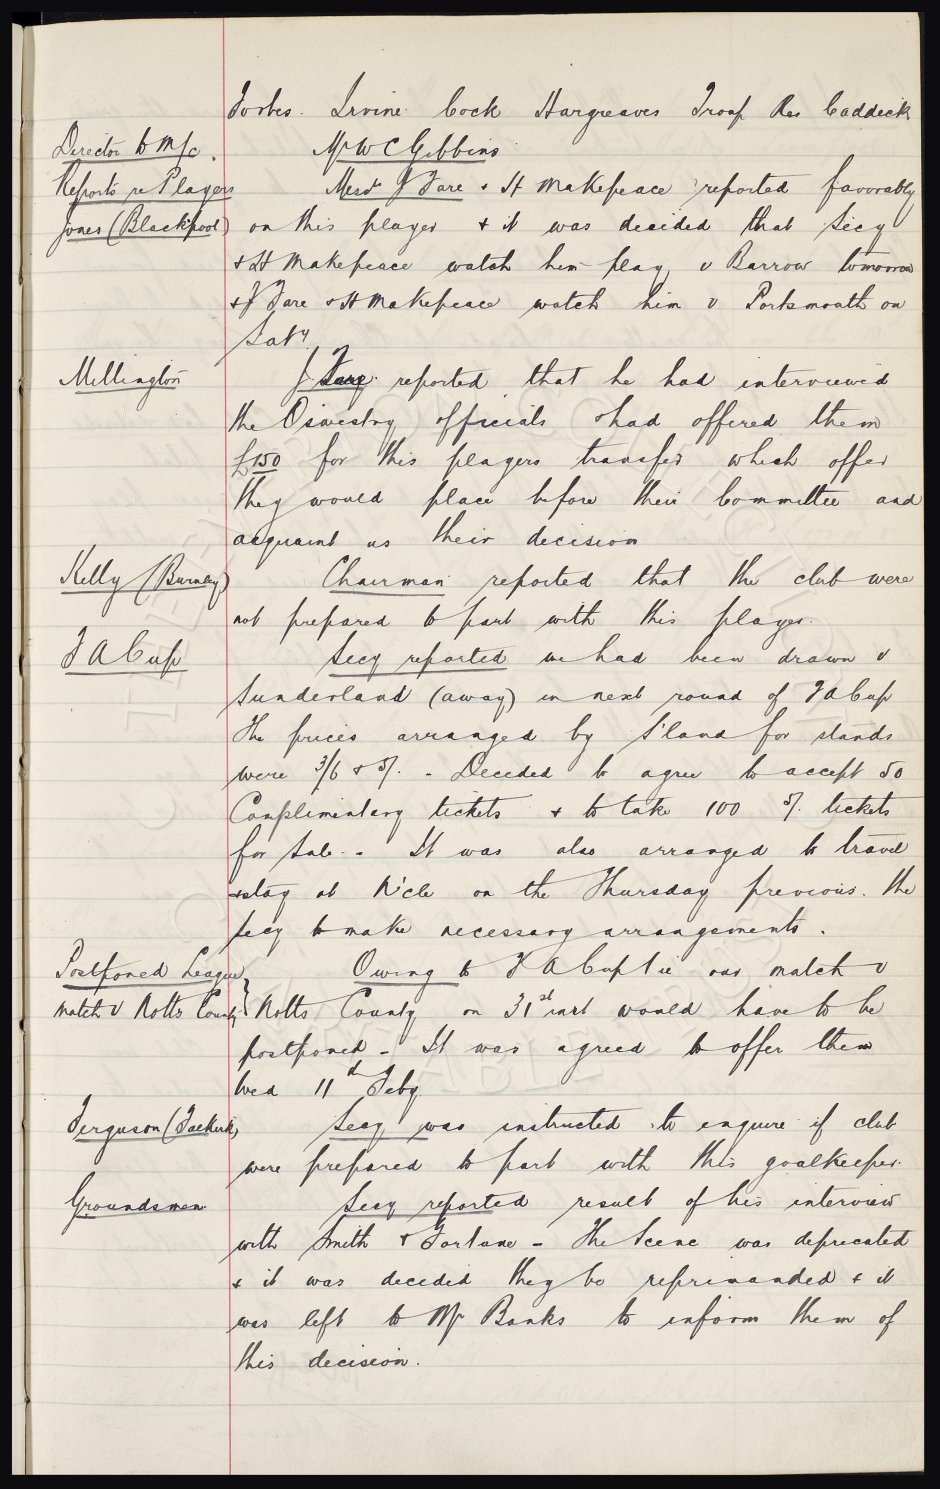 Forbes. Irvine. Cock Hargreaves Troup Res Caddick
Director to M/c. Mr W C Gibbins
Reports re Players Messrs J Fare & H Makepeace reported favorably
Jones (Blackpool) on this player & it was decided that Secy
& H Makepeace watch him play v Barrow tomorrow
& J Fare & H Makepeace watch him v Portsmouth on
Saty.
Millington J Fare reported that he had interviewed
the Oswestry officials & had offered them
£150 for this players transfer which offer
they would place before their Committee and
acquaint us their decision
Kelly (Burnley) Chairman reported that the club were
not prepared to part with this player.
F A Cup Secy reported we had been drawn v
Sunderland (away) in next round of F A Cup
The prices arranged by S'land for stands
were 3/6 & 5/. - Decided to agree to accept 50
Complimentary tickets & to take 100 5/. tickets
for sale. - It was also arranged to travel
& stay at N'cle on the Thursday previous. The
Secy to make necessary arrangements.
Postponed League Owing to F A Cup tie our match v
match v Notts County } Notts County on 31st inst would have to be
postponed - It was agreed to offer them
Wed 11th Feby.
Ferguson (Falkirk) Secy was instructed to enquire if club
were prepared to part with this goalkeeper.
Groundsmen Secy reported result of his interview
with Smith & Fortune - The Scene was deprecated
& it was decided they be reprimanded & it
was left to Mr Banks to inform them of
this decision.